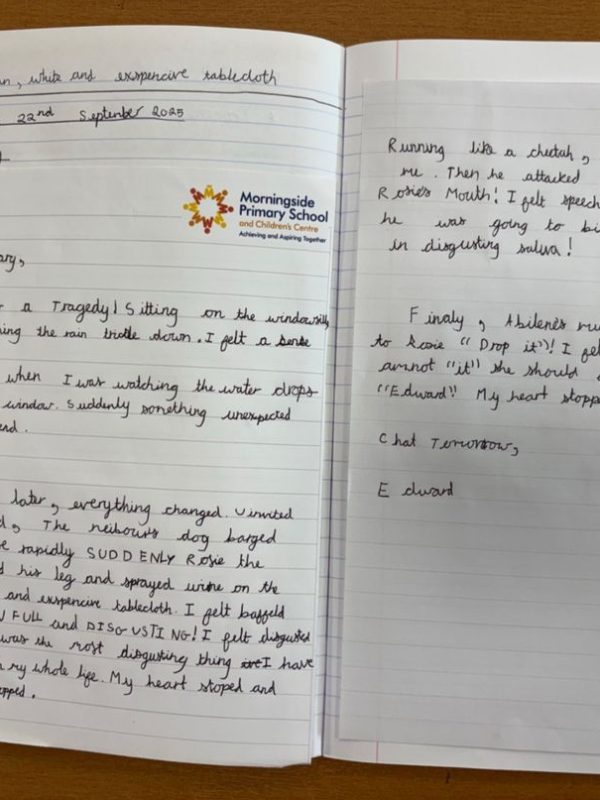 white and exspencive tablecloth
22nd September 2025
Morningside
Primary School
and Children's Centre
Achieving and Aspiring Together
ary,
a Tragedy! Sitting on the windowsill,
ing the rain down. I felt a sense
when I was watching the water drops
window. Suddenly something unexpected
end.
later, everything changed. Uninvited
d, The neibours dog barged
e rapidly SUDDENLY Rosie the
d his leg and sprayed urine on the
and exspencive tablecloth. I felt baffeld
FULL and DISGUSTING! I felt disgusted
was the most disgusting thing I have
my whole life. My heart stoped and
pped.
Running like a cheetah,
me. Then he attacked
Rosie's Mouth! I felt speech
he was going to bi
in disgusting saliva!
Finaly, Abilene's mu
to Rosie "Drop it"! I fel
amnot "it" she should
"Edward"! My heart stoppe
Chat Tomorrow,
Edward